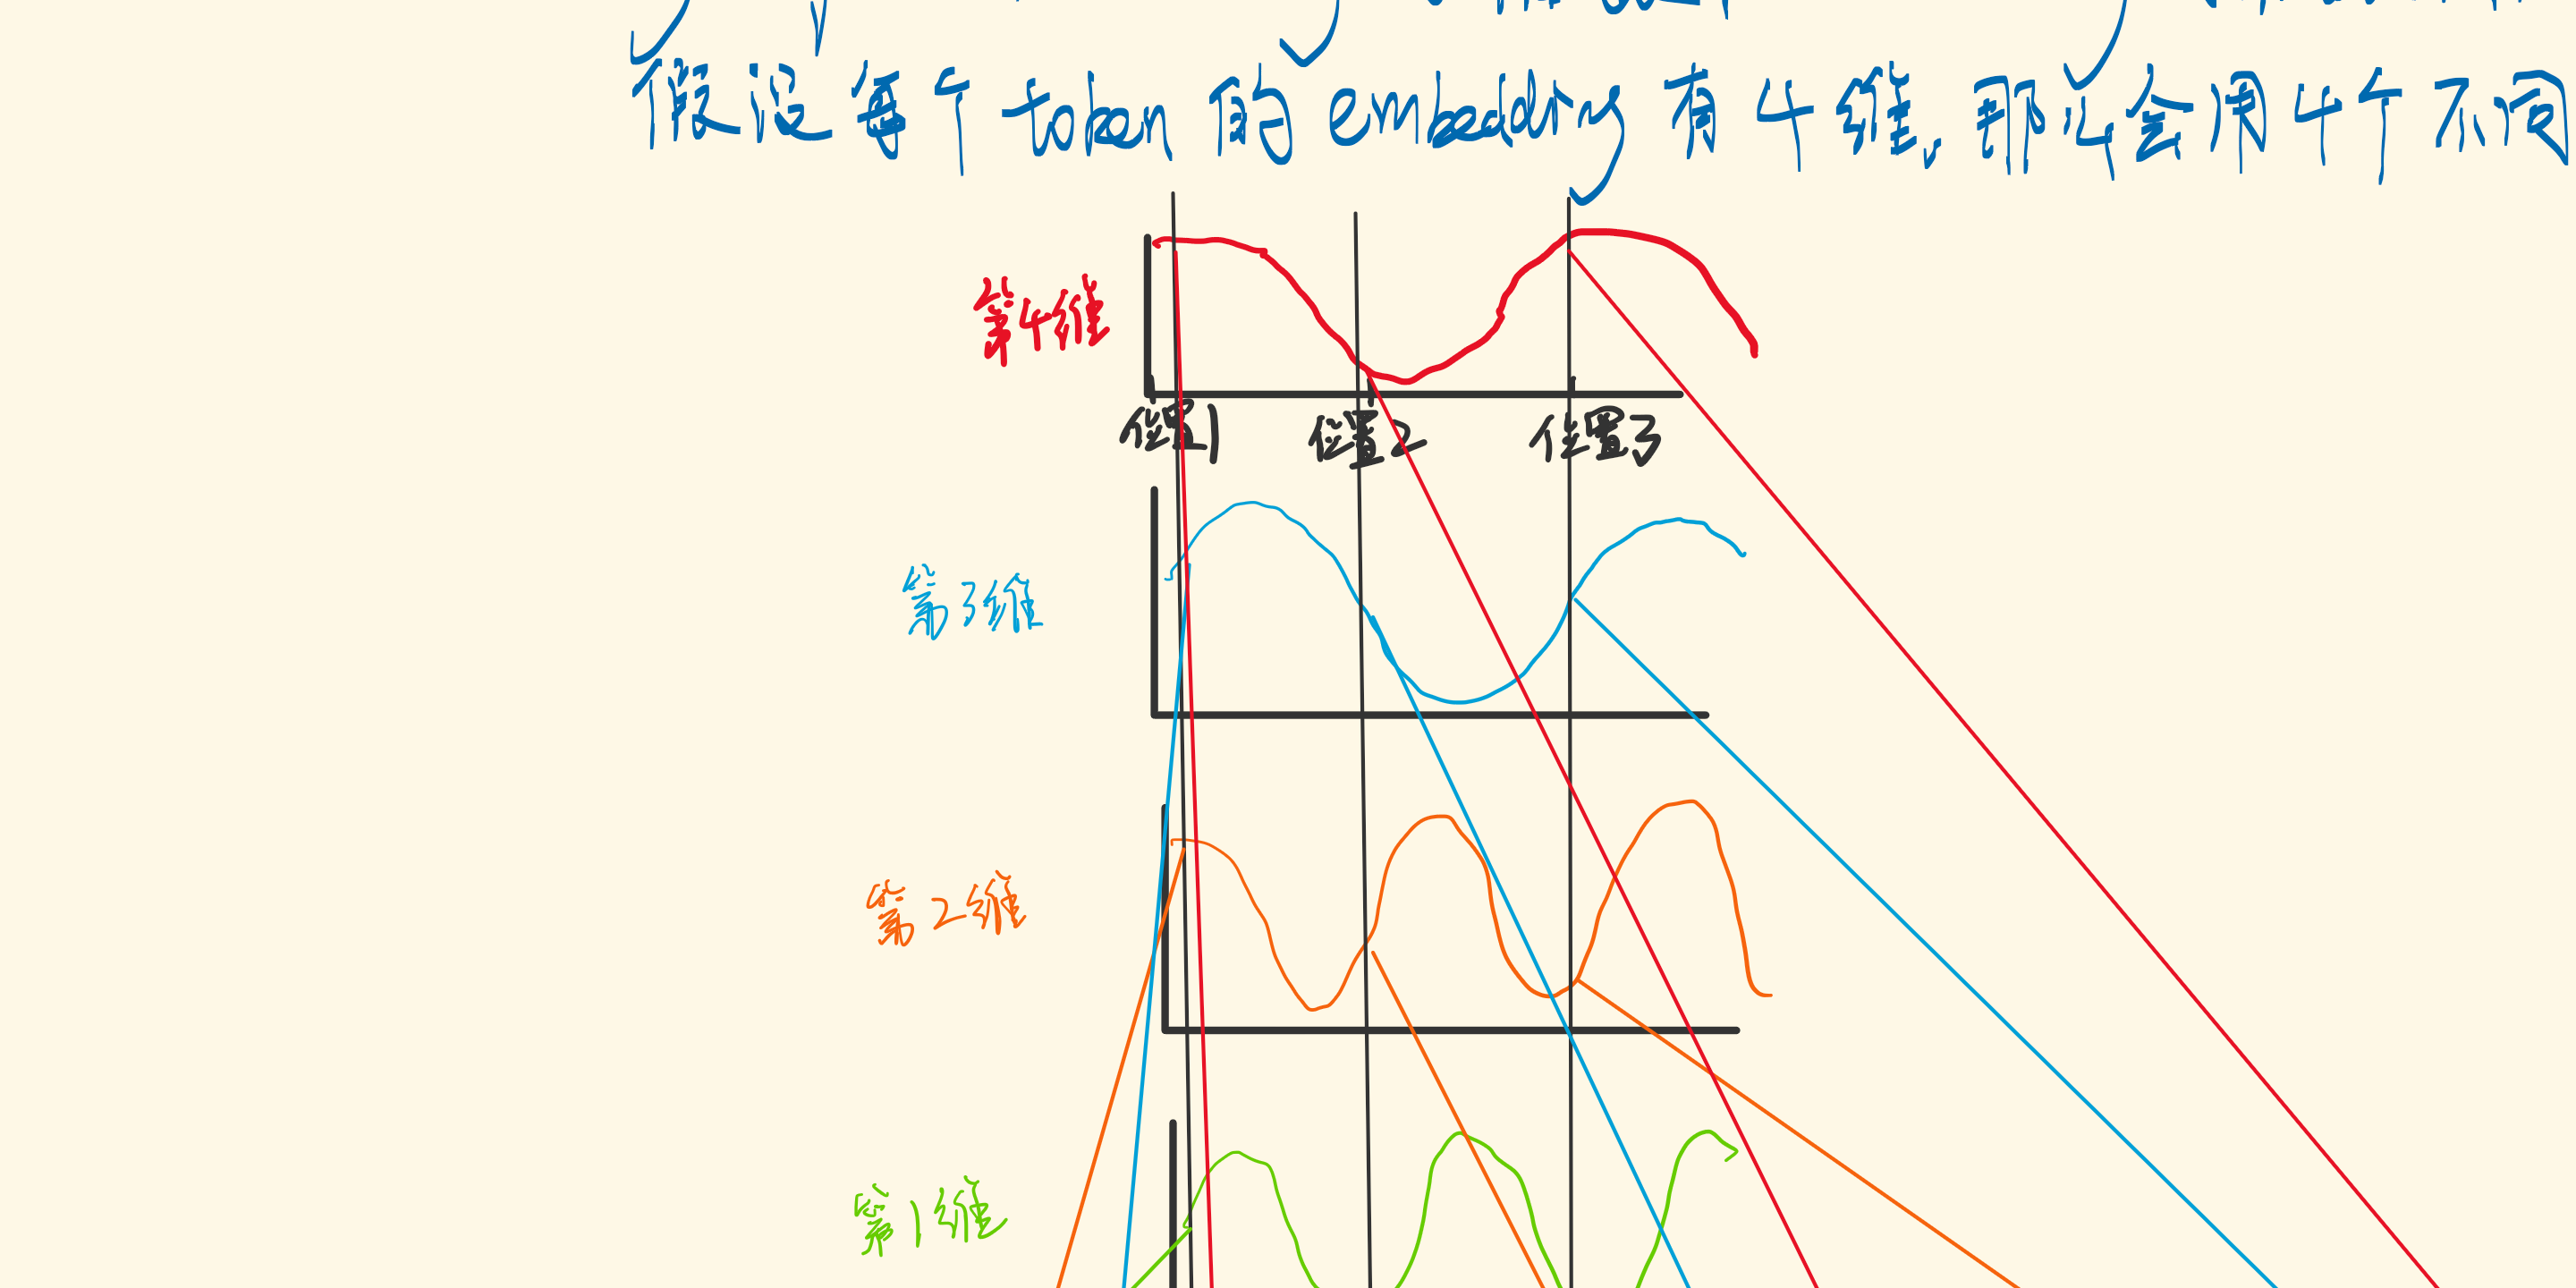 假设每个token的embedding有4维,那么会用4个不同
第4维
位置1 位置2 位置3
第3维
第2维
第1维